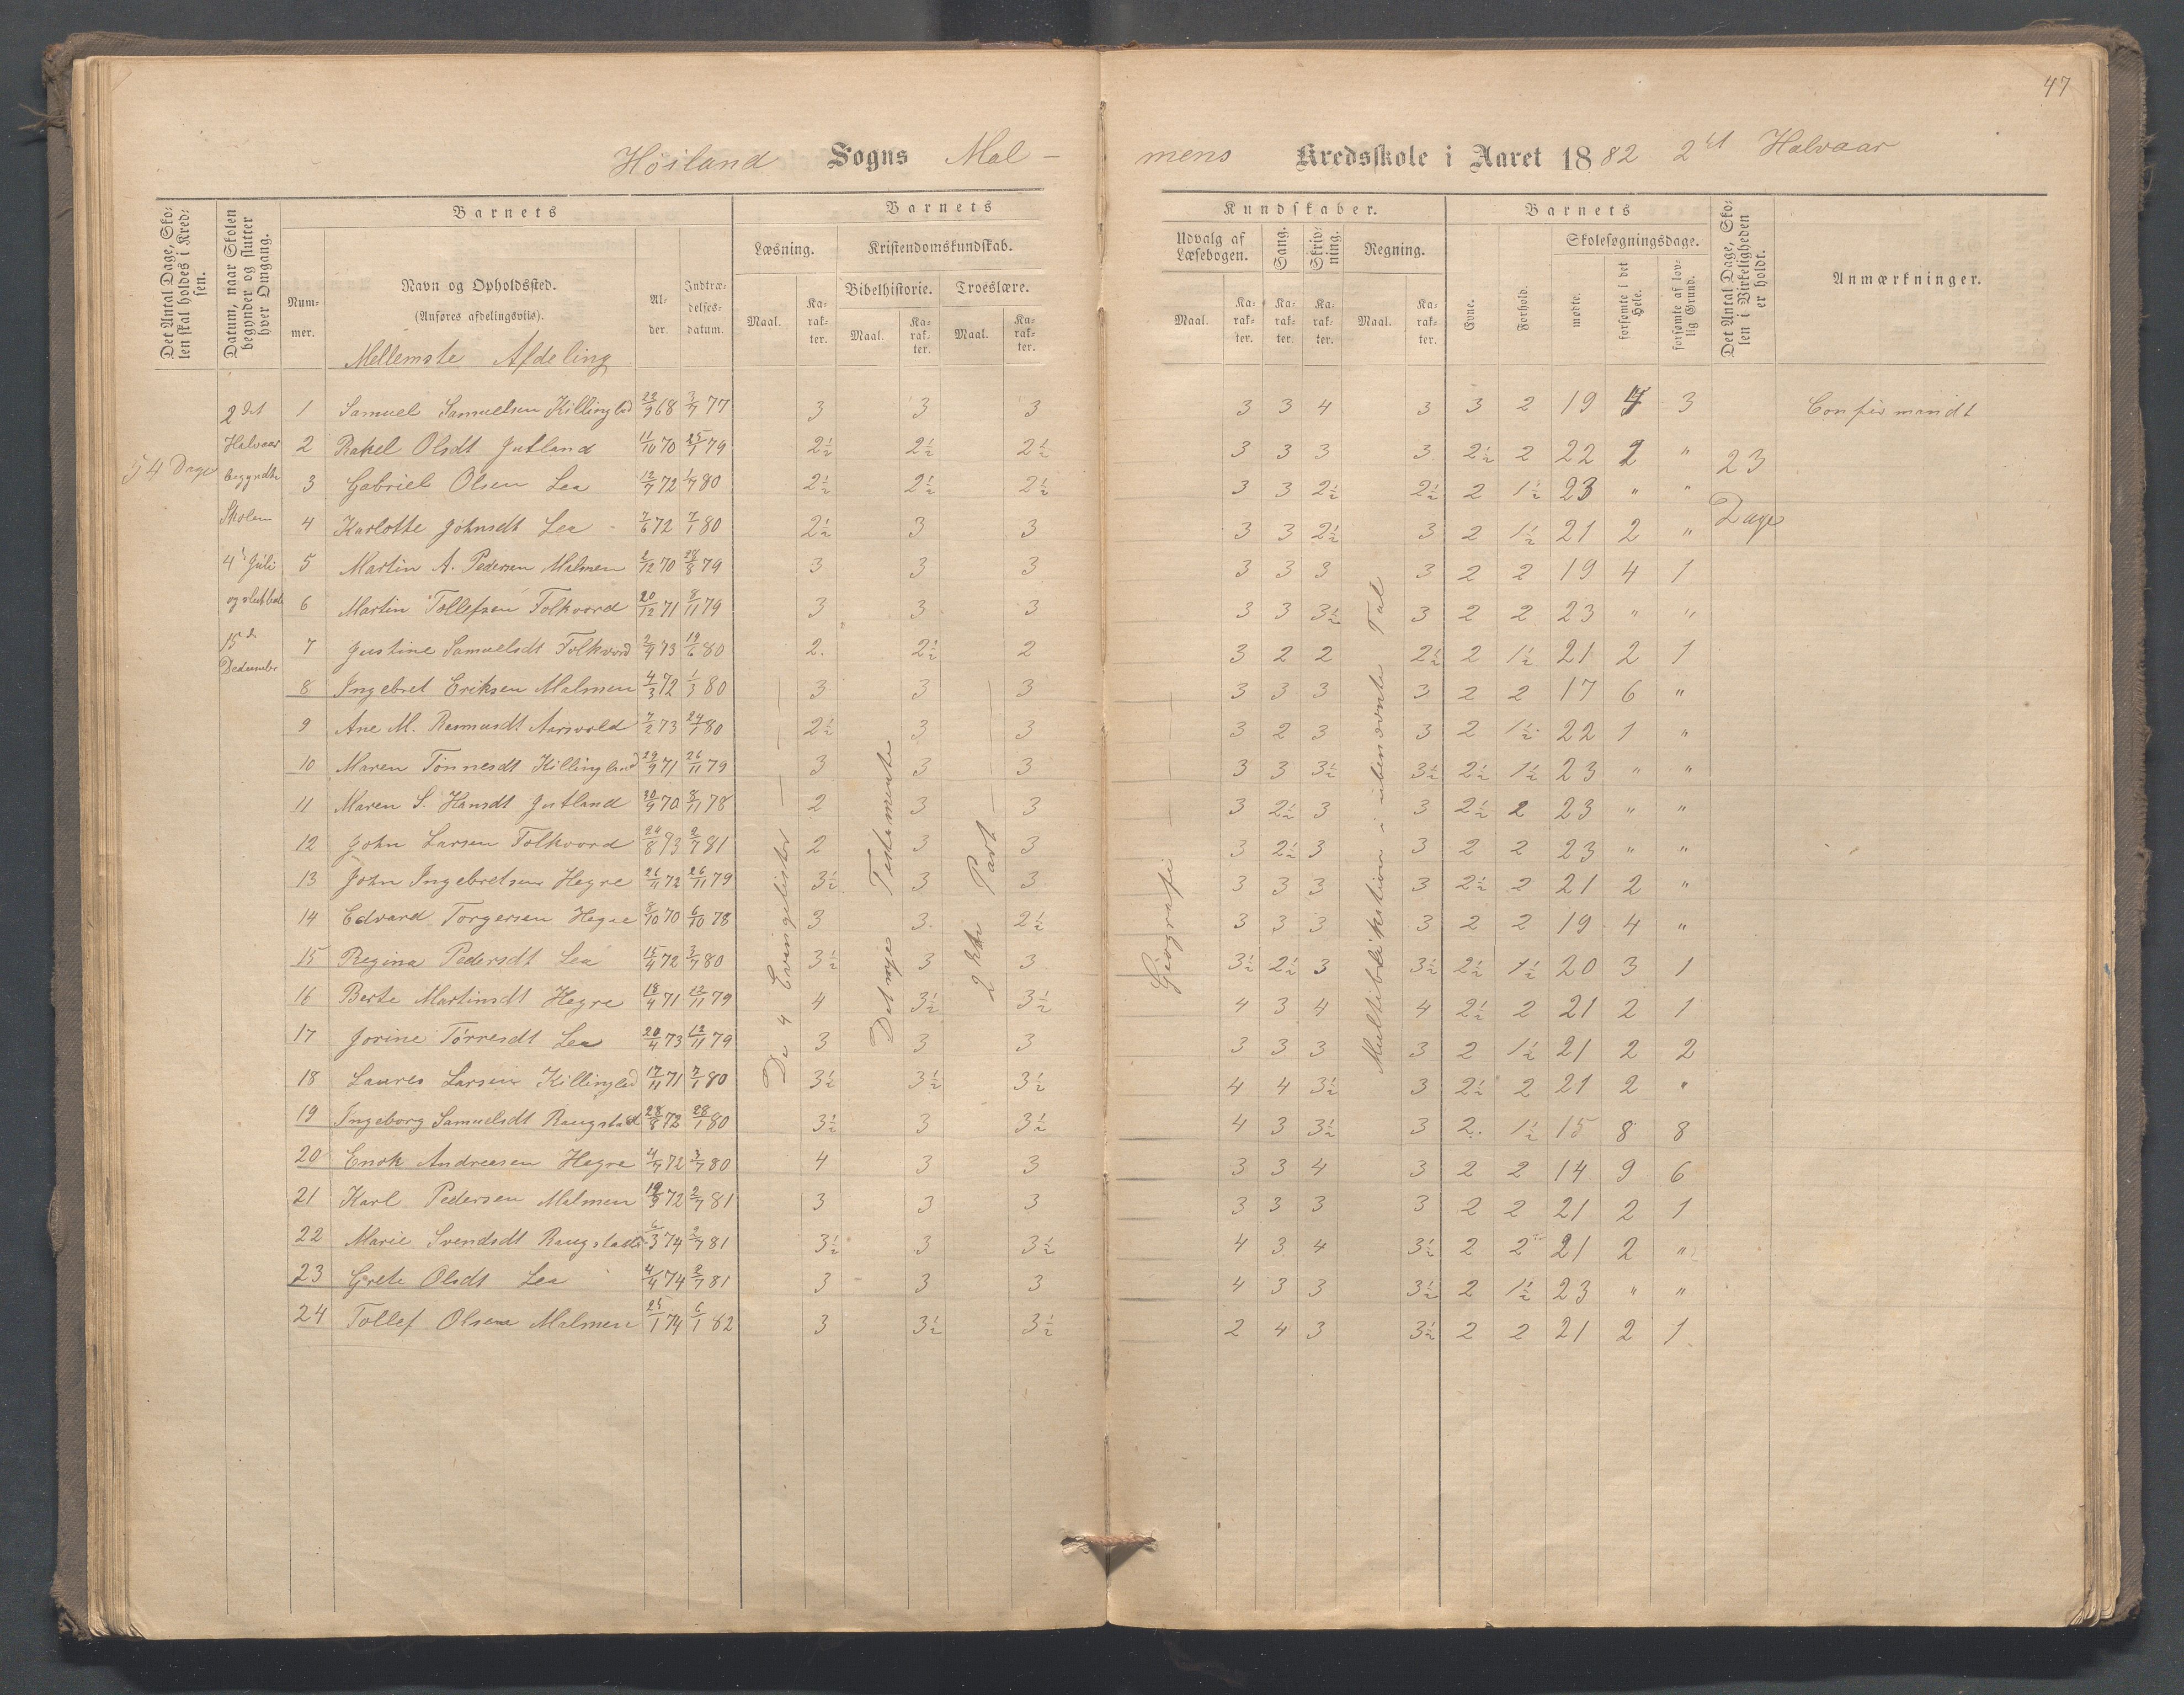 47
Höiland Sogns Mal- mens Kredsskole i Aaret 1882 2det Halvaar
Det Antal Dage, Skolen skal holdes i Kredsen.
Datum, naar Skolen begynder og slutter hver Omgang.
Barnets
Nummer.
Navn og Opholdssted.
(Anføres afdelingsviis).
Alder.
Indtrædelsesdatum.
Barnets
Læsning.
Maal.
Karakter.
Kristendomskundskab.
Bibelhistorie.
Maal.
Karakter.
Troeslære.
Maal.
Karakter.
Kundskaber.
Udvalg af Læsebogen.
Maal.
Karakter.
Sang.
Karakter.
Skrivning.
Karakter.
Regning.
Maal.
Karakter.
Barnets
Evne.
Forhold.
Skolesøgningsdage.
mødte.
forsømte i det Hele.
forsømte af lovlig Grund.
Det Antal Dage, Skolen i Virkeligheden er holdt.
Anmærkninger.
Mellemste Afdeling
54 Dage
2det
Halvaar
begyndte
Skolen
4de Juli
og sluttede
15de
Dedember
De 4 Evangelister
Det nye Testamente
2den Part
Geografi
Multiblikation i ubenævnte Tal
23
Dage
1 Samuel Samuelsen Killinglad 29/9 68 3/7 77 3 3 3 3 3 4 3 3 2 19 4 3 Confirmandt
2 Rakel Olsdt Jutland 11/10 70 25/1 79 2½ 2½ 2½ 3 3 3 3 2½ 2 22 2 "
3 Gabriel Olsen Lea 12/7 72 1/7 80 2½ 2½ 2½ 3 3 2½ 2½ 2 1½ 23 " "
4 Karlotte Johnsdt Lea 7/6 72 7/1 80 2½ 3 3 3 3 2½ 3 2 1½ 21 2 "
5 Martin A. Pedersen Malmen 2/12 70 28/8 79 3 3 3 3 3 3 3 2 2 19 4 1
6 Martin Tollefsen Folkvord 20/12 71 8/11 79 3 3 3 3 3 3½ 3 2 2 23 " "
7 Justine Samuelsdt Folkvord 2/4 73 19/6 80 2. 2½ 2 3 2 2 2½ 2 1½ 21 2 1
8 Ingebret Eriksen Malmen 4/3 72 1/3 80 3 3 3 3 3 3 3 2 2 17 6 "
9 Ane M. Rasmusdt. Aarsvold 7/2 73 24/7 80 2½ 3 3 3 2 3 3 2 1½ 22 1 "
10 Maren Tönnesdt Killingland 29/9 71 26/11 79 3 3 3 3 3 3½ 3½ 2½ 1½ 23 " "
11 Maren S. Hansdt Jutland 30/9 70 8/11 78 2 3 3 3 2½ 3 3 2½ 2 23 " "
12 John Larsen Folkvord 24/8 73 2/7 81 2 3 3 3 2½ 3 3 2 2 23 " "
13 John Ingebretsen Hegre 26/11 72 26/11 79 3½ 3 3 3 3 3 3 2½ 2 21 2 "
14 Edvard Torgersen Hegre 8/10 70 6/10 78 3 3. 2½ 3 3 3 3 2 2 19 4 "
15 Regina Pedersdt Lea 15/4 72 3/7 80 3½ 3 3 3½ 2½ 3 3½ 2½ 1½ 20 3 1
16 Berte Martinsdt Hegre 18/4 71 12/11 79 4 3½ 3½ 4 3 4 4 2½ 2 21 2 1
17 Jorine Törresdt Lea 20/4 73 12/11 79 3 3 3 3 3 3 3 2 1½ 21 2 2
18 Laures Larsen Killinglad 17/11 71 7/1 80 3½ 3½ 3½ 4 4 3½ 3 2½ 2 21 2 "
19 Ingeborg Samuelsdt Raugstad 28/8 72 28/1 80 3½ 3 3½ 4 3 3½ 3 2. 1½ 15 8 8
20 Enok Andreesen Hegre 4/7 72 3/7 80 4 3 3 3 3 4 3 2 2 14 9 6
21 Karl Pedersen Malmen 19/9 72 2/7 81 3 3 3 3 3 3 3 2 2 21 2 1
22 Marie Svendsdt Raugstad 6/3 74 2/7 81 3½ 3 3½ 4 3 4 3½ 2 2 21 2 "
23 Grete Olsdt Lea 4/4 74 2/7 81 3 3 3 4 3 3 3½ 2 1½ 23 " "
24 Tollef Olsen Malmen 25/1 74 6/1 82 3 3½ 3½ 2 4 3 3½ 2 2 21 2 1